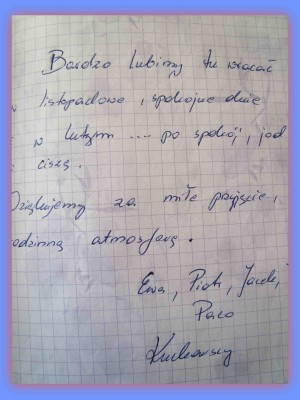 Bardzo lubimy tu wracać
w listopadowe, spokojne dnie
w lutym .... po spokój, jod
ciszą.
Dziękujemy za miłe przyjęcie,
rodzinną atmosferę.
Ewa, Piotr, Jacek,
Paco